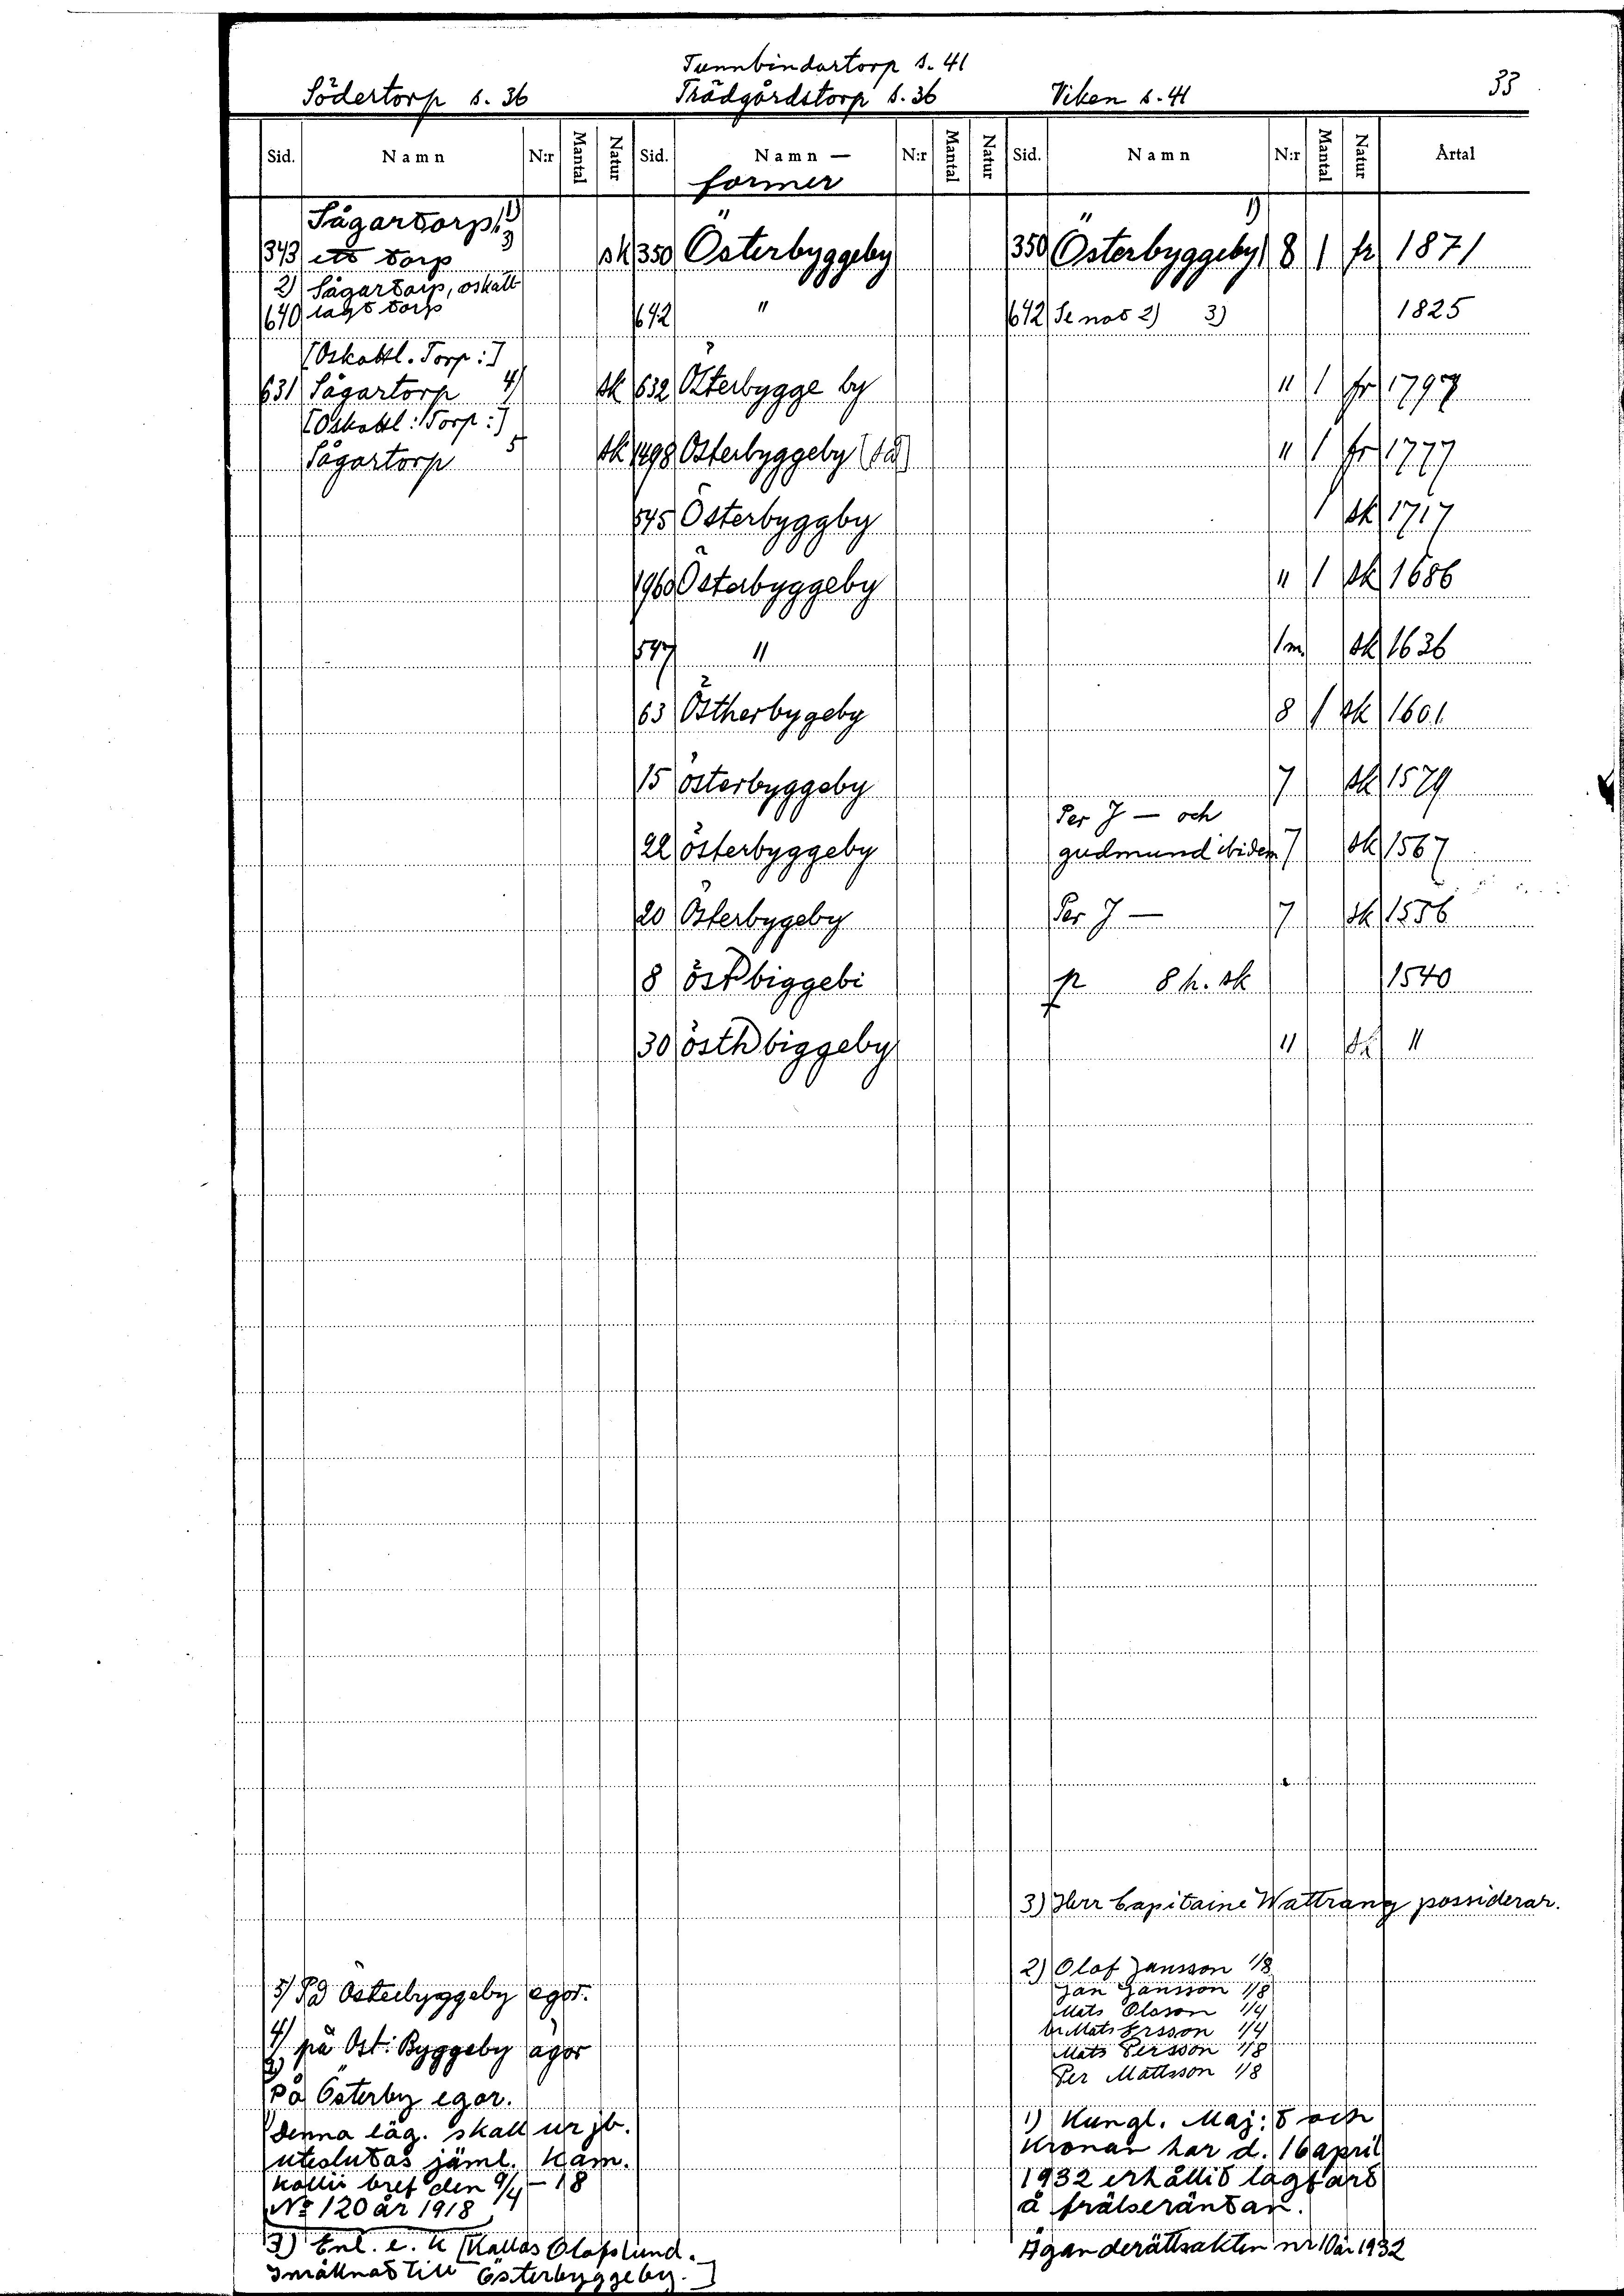 Tunnbindartorp s. 41
Södertorp s. 36 Trädgårdstorp s. 36 Viken s. 41 33
Sid. Namn N:r Mantal Natur Sid. Namn — N:r Mantal Natur Sid. Namn N:r Mantal Natur Årtal
former
Sågartorp 1)
343 ett torp 3) sk 350 Österbyggeby 350 Österbyggeby 1) 8 1 fr 1871
2) Sågartorp, oskatt
640 lagt torp 642 " 642 Se not 2) 3) 1825
[Oskattl. Torp:]
631 Sågartorp 4) sk 632 Österbygge by " 1 fr 1797
[Oskattl: Torp:]
Sågartorp 5 sk 1498 Österbyggeby " 1 fr 1777
545 Österbyggby 1 sk 1717
1960 Österbyggeby " 1 sk 1686
547 " 1m. sk 1636
63 Östherbygeby 8 1 sk 1601
15 österbyggeby 7 sk 1579
Per J — och
22 österbyggeby gudmund ibidem 7 sk 1567
20 Österbygeby Per J — 7 sk 1556
8 öst biggebi p 8 h. sk 1540
30 östh biggeby " sk "
3) Herr Capitaine Wattrang possiderar.
2) Olof Jansson 1/8
Jan Jansson 1/8
Mats Olsson 1/4
Mats Ersson 1/4
Mats Persson 1/8
Per Mattsson 1/8
5) På Österbyggeby egor.
4) på Öst: Byggeby ägor
2) på Österby egor.
1) denna läg. skall ur jb.
uteslutas jäml. Kam.
kollii bref den 9/4 - 18
No 120 år 1918
3) Enl. e. u [Kallas Olofslund.
Inräknat till Österbyggeby.]
1) Kungl. Maj:t och
Kronan har d. 16 april
1932 erhållit lagfart
å frälseräntan.
Äganderättsakten nr 10 år 1932